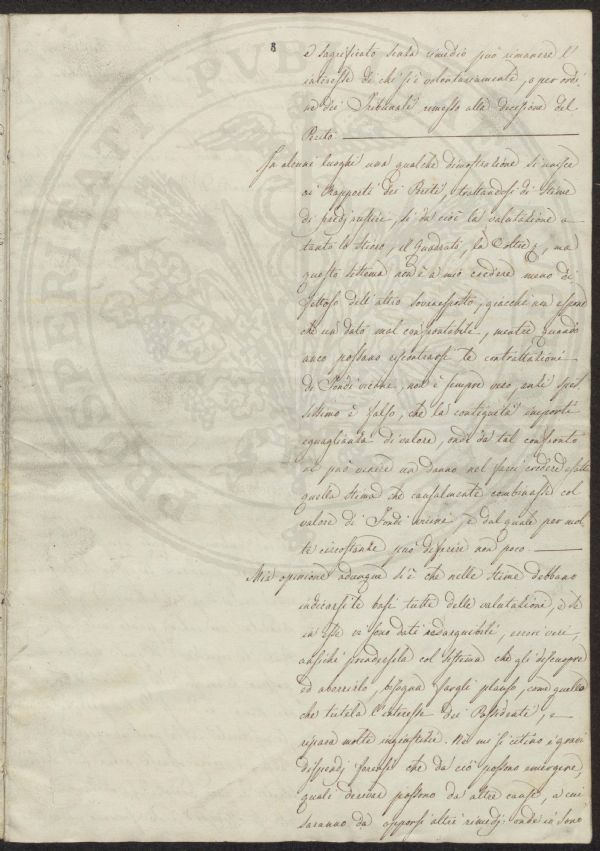 8
e sagrificato senza rimedio può rimanere l'
interesse di chi si è volontariamente, o per ordi-
ne dei Tribunali rimesso alla decisione del
Perito
In alcuni luoghi una qualche dimostrazione si unisce
ai Rapporti dei Periti, trattandosi di stime
di predj, si dà cioè la valutazione a
tanto lo Stioro, il Quadrato, la Coltre, ma
questo sistema non è a mio credere meno di-
fettoso dell'altro sovraesposto, giacchè non espone
che un dato mal confrontabile, mentre quando
anco possano riscontrarsi le contrattazioni
di Fondi vicini, non è sempre vero, anzi spes-
sissimo è falso, che la contiguità importi
eguaglianza di valore, onde da tal confronto
ne può venire un danno nel farsi credere esatta
quella stima che casualmente combinasse col
valore di Fondi vicini, e dal quale per mol-
te circostanze può differire non poco.
Mia opinione adunque si è che nelle stime debbano
indicarsi le basi tutte delle valutazioni, e se
in esse vi sono dati redarguibili, errori veri,
anzichè prendersela col sistema che gli discuopre
ed aborrirlo, bisogna fargli plauso, come quello
che tutela l'interesse dei Possidenti, e
ripara molte ingiustizie. Nè mi si citino i gravi
dispendj forensi che da ciò possono emergere,
quali derivar possono da altre cause, a cui
saranno da apporsi altri rimedj: onde io sono
PROSPERITATI PUB